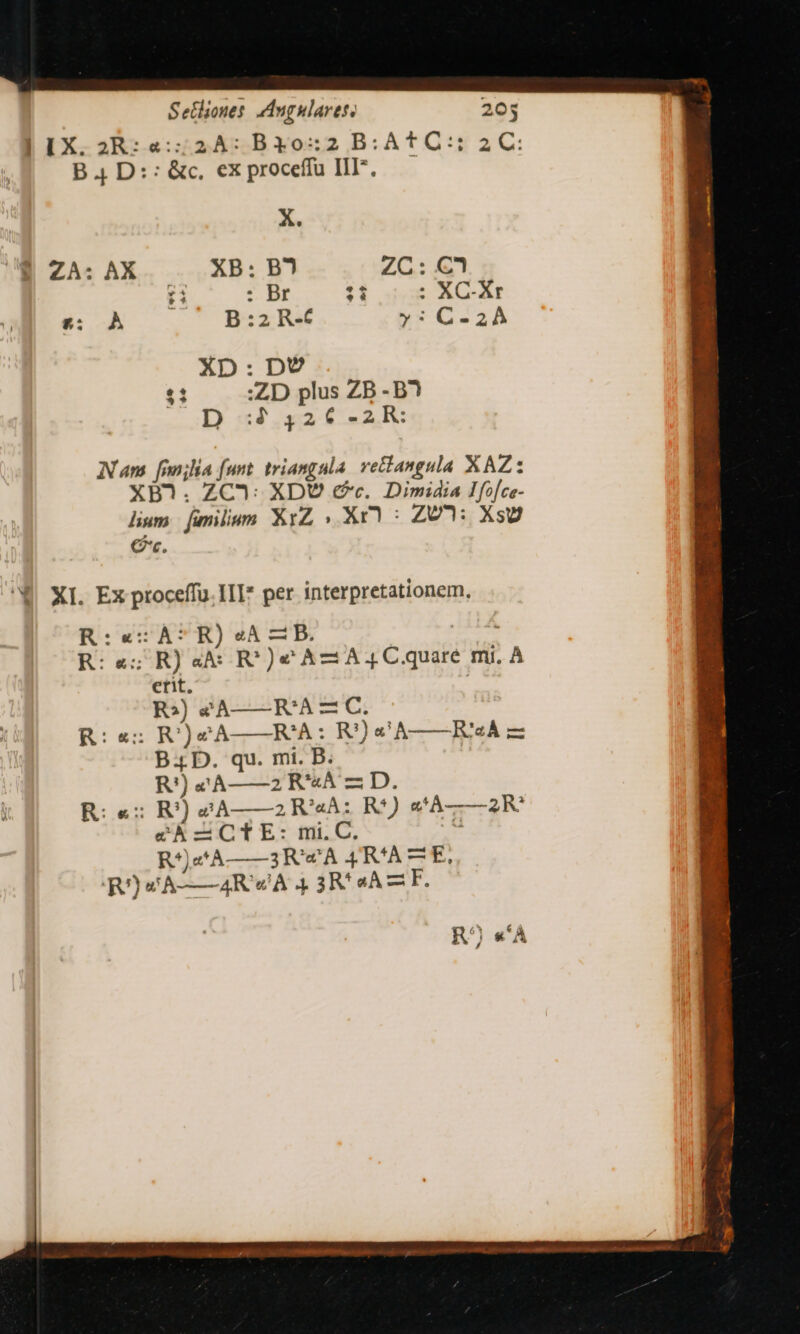 Sectiones Angulares. 205
IX. 2R: α::2A: B⸸0::2 B:A⸸C:: 2C:
B⸸D:: &c. ex processu IIIᵃ.
X.
ZA: AX XB: Bך ZC: Cך
:: : Br :: : XC-Xr
α: A B:2R-ϐ γ: C-2A
XD: Dש
:: :ZD plus ZB-Bך
D :δ⸸2ϐ-2R:
Nam similia sunt triangula rectangula XAZ:
XBך. ZCך: XDש &c. Dimidia Isosce-
lium similium XrZ, Xrך: Zשך: Xsש
&c.
XI. Ex processu IIIᵃ per interpretationem.
R: α:: A: R) αA = B.
R: α:: R) αA: R²) α²A = A⸸C. quare mi. A
erit.
R²) α²A——R²A = C.
R: α:: R²) α²A——R²A: R³) α³A——R²αA =
B⸸D. qu. mi. B.
R³) α³A——2R²αA = D.
R: α:: R³) α³A——2R²αA: R⁴) α⁴A——2R²
α²A = C⸸E: mi. C.
R⁴) α⁴A——3R²α²A⸸R⁴A = E.
R⁵) α⁵A——4R²α³A⸸3R⁴αA = F.
R⁶) α⁶A